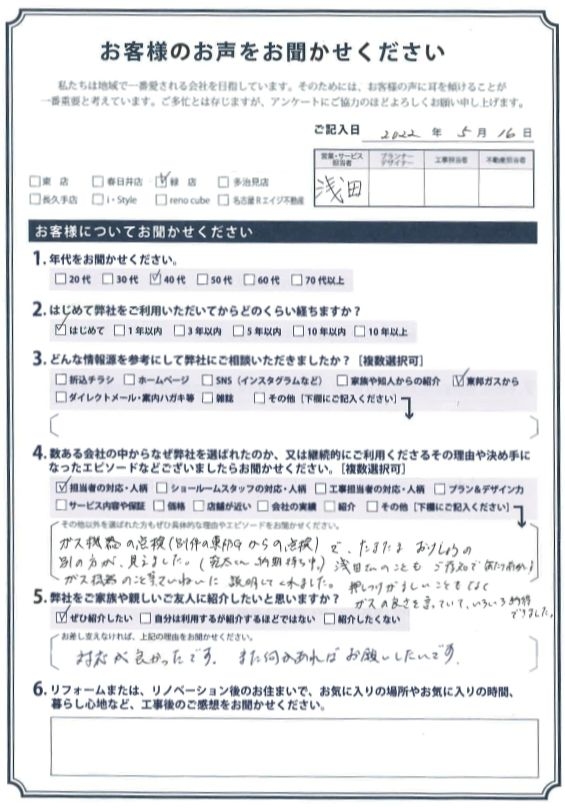 お客様のお声をお聞かせください
私たちは地域で一番愛される会社を目指しています。そのためには、お客様の声に耳を傾けることが
一番重要と考えています。ご多忙とは存じますが、アンケートにご協力のほどよろしくお願い申し上げます。
ご記入日 2022 年 5 月 16 日
営業・サービス担当者 プランナーデザイナー 工事担当者 不動産担当者
浅田
□東 店 □春日井店 ☑緑 店 □多治見店
□長久手店 □i・Style □reno cube □名古屋Rエイジ不動産
お客様についてお聞かせください
1. 年代をお聞かせください。
□20代 □30代 ☑40代 □50代 □60代 □70代以上
2. はじめて弊社をご利用いただいてからどのくらい経ちますか?
☑はじめて □1年以内 □3年以内 □5年以内 □10年以内 □10年以上
3. どんな情報源を参考にして弊社にご相談いただきましたか?［複数選択可］
□折込チラシ □ホームページ □SNS(インスタグラムなど) □家族や知人からの紹介 ☑東邦ガスから
□ダイレクトメール・案内ハガキ等 □雑誌 □その他［下欄にご記入ください］
4. 数ある会社の中からなぜ弊社を選ばれたのか、又は継続的にご利用くださるその理由や決め手に
なったエピソードなどございましたらお聞かせください。［複数選択可］
☑担当者の対応・人柄 □ショールームスタッフの対応・人柄 □工事担当者の対応・人柄 □プラン&デザイン力
□サービス内容や保証 □価格 □店舗が近い □会社の実績 □紹介 □その他［下欄にご記入ください］
その他以外を選ばれた方もぜひ具体的な理由やエピソードをお聞かせください。
ガス機器の点検(別件の東邦Gからの点検)で、たまたま
別の方が、見えました。 浅田さんのことも ご存知で
ガス機器のこと等ていねいに説明してくれました。 押しつけがましいこともなく
ガスの良さを言っていて、いろいろ納得
できました。
5. 弊社をご家族や親しいご友人に紹介したいと思いますか?
☑ぜひ紹介したい □自分は利用するが紹介するほどではない □紹介したくない
お差し支えなければ、上記の理由をお聞かせください。
対応が良かったです。 また何かあれば お願いしたいです。
6. リフォームまたは、リノベーション後のお住まいで、お気に入りの場所やお気に入りの時間、
暮らし心地など、工事後のご感想をお聞かせください。